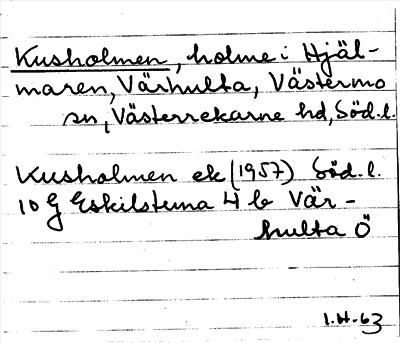 Kusholmen, holme i Hjäl-
maren, Värhulta, Västermo
sn, Västerrekarne hd, Söd. l.
Kusholmen ek (1957) Söd. l.
10 G Eskilstuna 4 b Vär-
hulta Ö
1.H.63